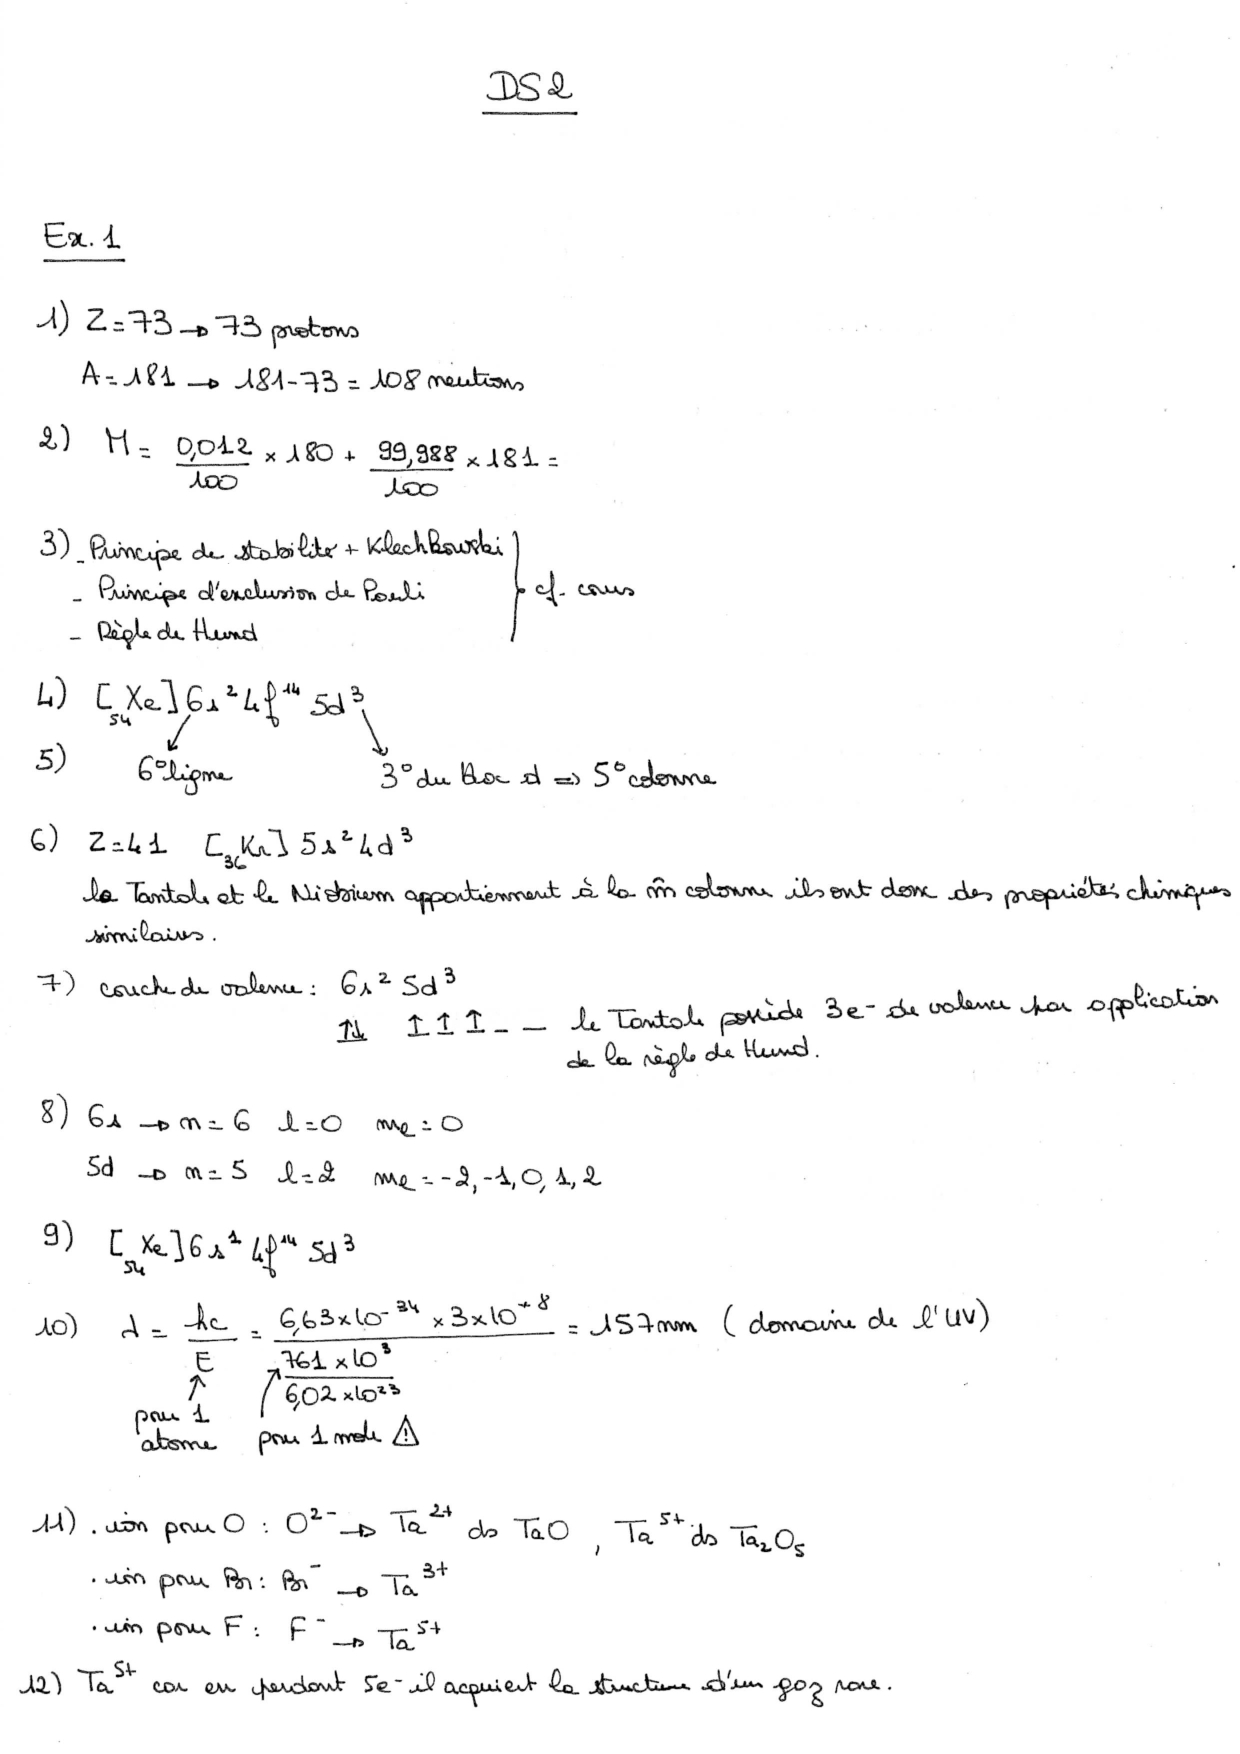 DS2
Ex. 1
1) Z=73 → 73 protons
A=181 → 181-73 = 108 neutrons
2) M = 0,012/100 × 180 + 99,988/100 × 181 =
3) - Principe de stabilité + Klechkowski
- Principe d'exclusion de Pauli } cf. cours
- Règle de Hund
4) [₅₄Xe] 6s² 4f¹⁴ 5d³
5) 6° ligne 3° du bloc d => 5° colonne
6) Z=41 [₃₆Kr] 5s² 4d³
le Tantale et le Niobium appartiennent à la m̂ colonne ils ont donc des propriétés chimiques
similaires.
7) couche de valence : 6s² 5d³
↑↓ ↑ ↑ ↑ _ _ le Tantale possède 3e⁻ de valence par application
de la règle de Hund.
8) 6s → n=6 l=0 mₑ=0
5d → n=5 l=2 mₑ=-2,-1,0,1,2
9) [₅₄Xe] 6s¹ 4f¹⁴ 5d³
10) λ = hc/E = (6,63×10⁻³⁴ × 3×10⁺⁸)/(761×10³/6,02×10²³) = 157nm (domaine de l'UV)
pour 1 pour 1 mole ⚠
atome
11) . ion pour O : O²⁻ → Ta²⁺ ds TaO , Ta⁵⁺ ds Ta₂O₅
. ion pour Br : Br⁻ → Ta³⁺
. ion pour F : F⁻ → Ta⁵⁺
12) Ta⁵⁺ car en perdant 5e⁻ il acquiert la structure d'un gaz rare.